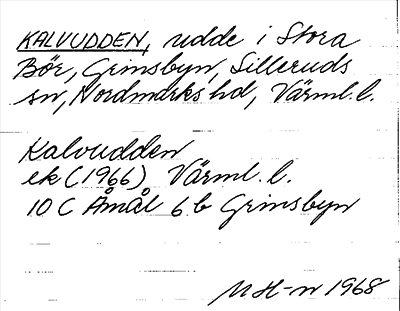 KALVUDDEN, udde i Stora
Bör, Grinsbyn, Silleruds
sn, Nordmarks hd, Värml. l.
Kalvudden
ek (1966) Värml. l.
10 C Åmål 6 b Grinsbyn
M H-n 1968